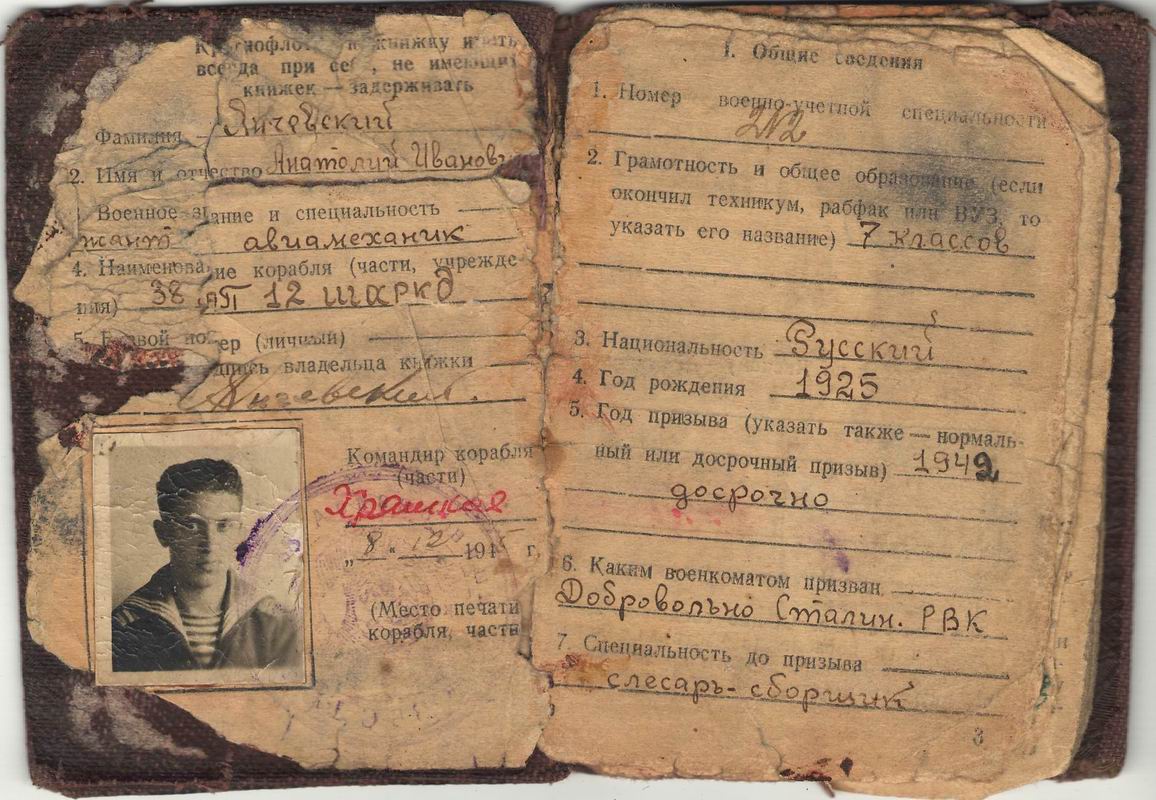 Краснофлотскую книжку иметь
всегда при себе, не имеющих
книжек — задерживать
Фамилия Янчевский
2. Имя и отчество Анатолий Иванович
Военное звание и специальность
жант авиамеханик
4. Наименование корабля (части, учрежде-
ния) 38 АП 12 ШКРКД
5. Боевой номер (личный)
дпись владельца книжки
Янчевский.
Командир корабля
(части)
„8“ 12 194 г.
(Место печати
корабля, части
I. Общие сведения
1. Номер военно-учетной специальности
212
2. Грамотность и общее образование (если
окончил техникум, рабфак или ВУЗ, то
указать его название) 7 классов
3. Национальность Русский
4. Год рождения 1925
5. Год призыва (указать также — нормаль-
ный или досрочный призыв) 1942
досрочно
6. Каким военкоматом призван
Добровольно Сталин. РВК
7. Специальность до призыва
слесарь-сборщик
3